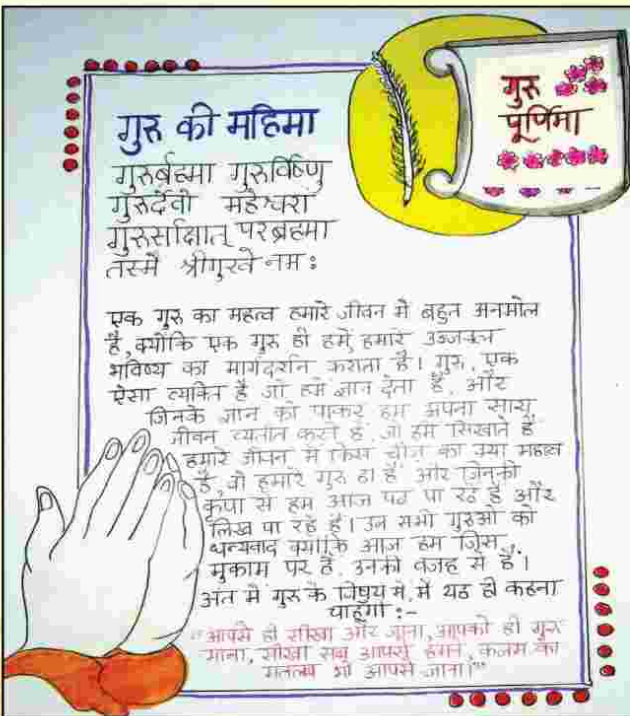 गुरु
पूर्णिमा
गुरु की महिमा
गुरुर्ब्रहमा गुरुर्विष्णु
गुरुर्देवो महेश्वरा
गुरुर्साक्षात् परब्रहमा
तस्मै श्रीगुरवे नम :
एक गुरु का महत्व हमारे जीवन मे बहुत अनमोल
है, क्योंकि एक गुरु ही हमें हमारे उज्जवल
भविष्य का मार्गदर्शन कराता है। गुरु, एक
ऐसा व्यक्ति है जो हमे ज्ञान देता है, और
जिनके ज्ञान को पाकर हम अपना सारा
जीवन व्यतीत करते है, जो हमे सिखाते है
हमारे जीवन मे किस चीज का क्या महत्व
है, वो हमारे गुरु ही है और जिनकी
कृपा से हम आज पढ पा रहे है और
लिख पा रहे है। उन सभी गुरुओ को
धन्यवाद क्योंकि आज हम जिस
मुकाम पर है, उनकी वजह से है।
अंत मे गुरु के विषय मे, मै यह ही कहना
चाहूंगी :-
"आपसे ही सीखा और जाना, आपको ही गुरु
माना, सीखा सब आपसे हमने, कलम का
मतलब भी आपसे जाना।"